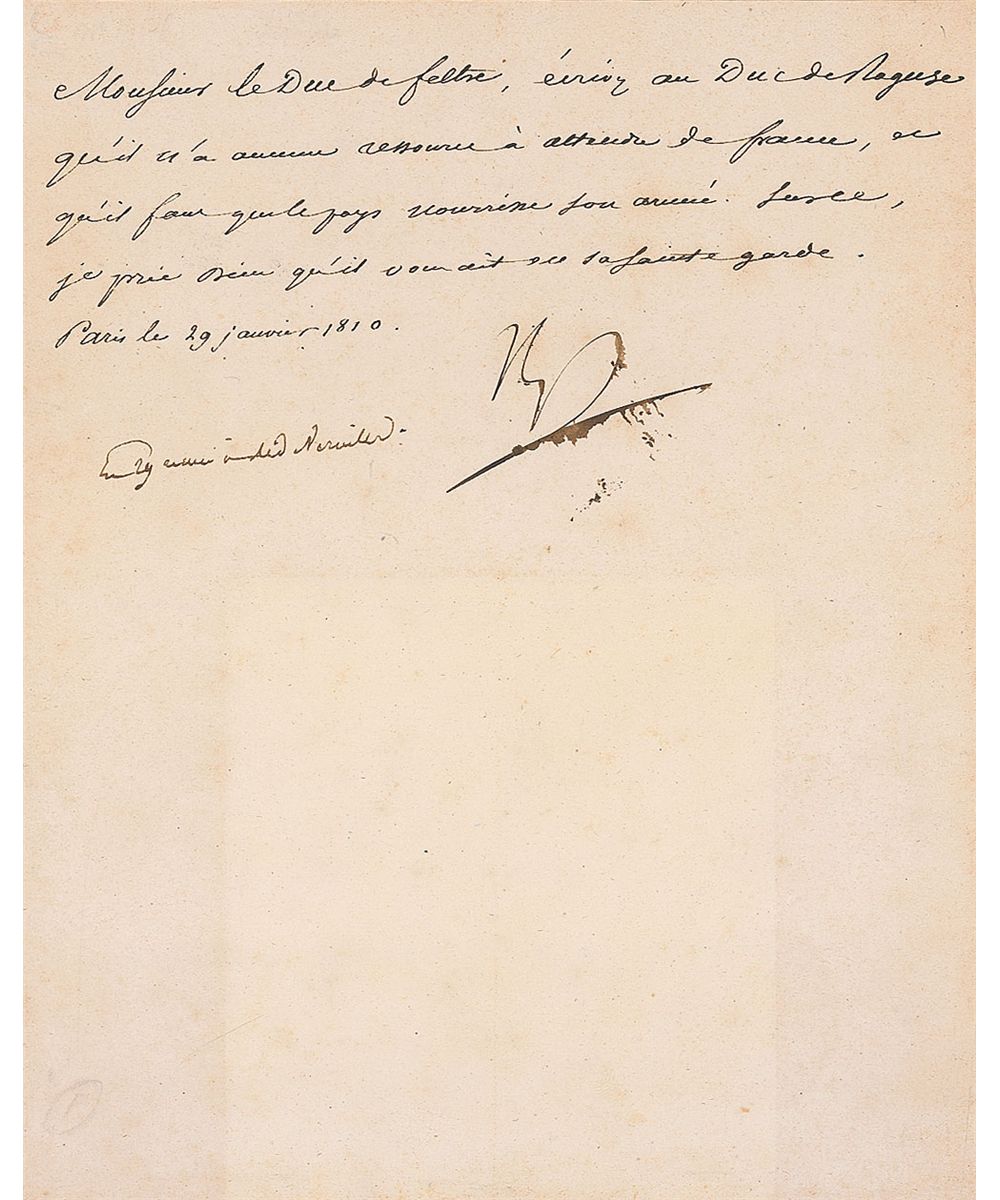 Monsieur le Duc de feltre, écrivez au Duc de Raguse
qu'il n'a aucune ressource à attendre de france, et
qu'il faut que le pays nourrisse son armée. Sur ce,
je prie Dieu qu'il vous ait en sa sainte garde.
Paris le 29 janvier 1810.
Np
29